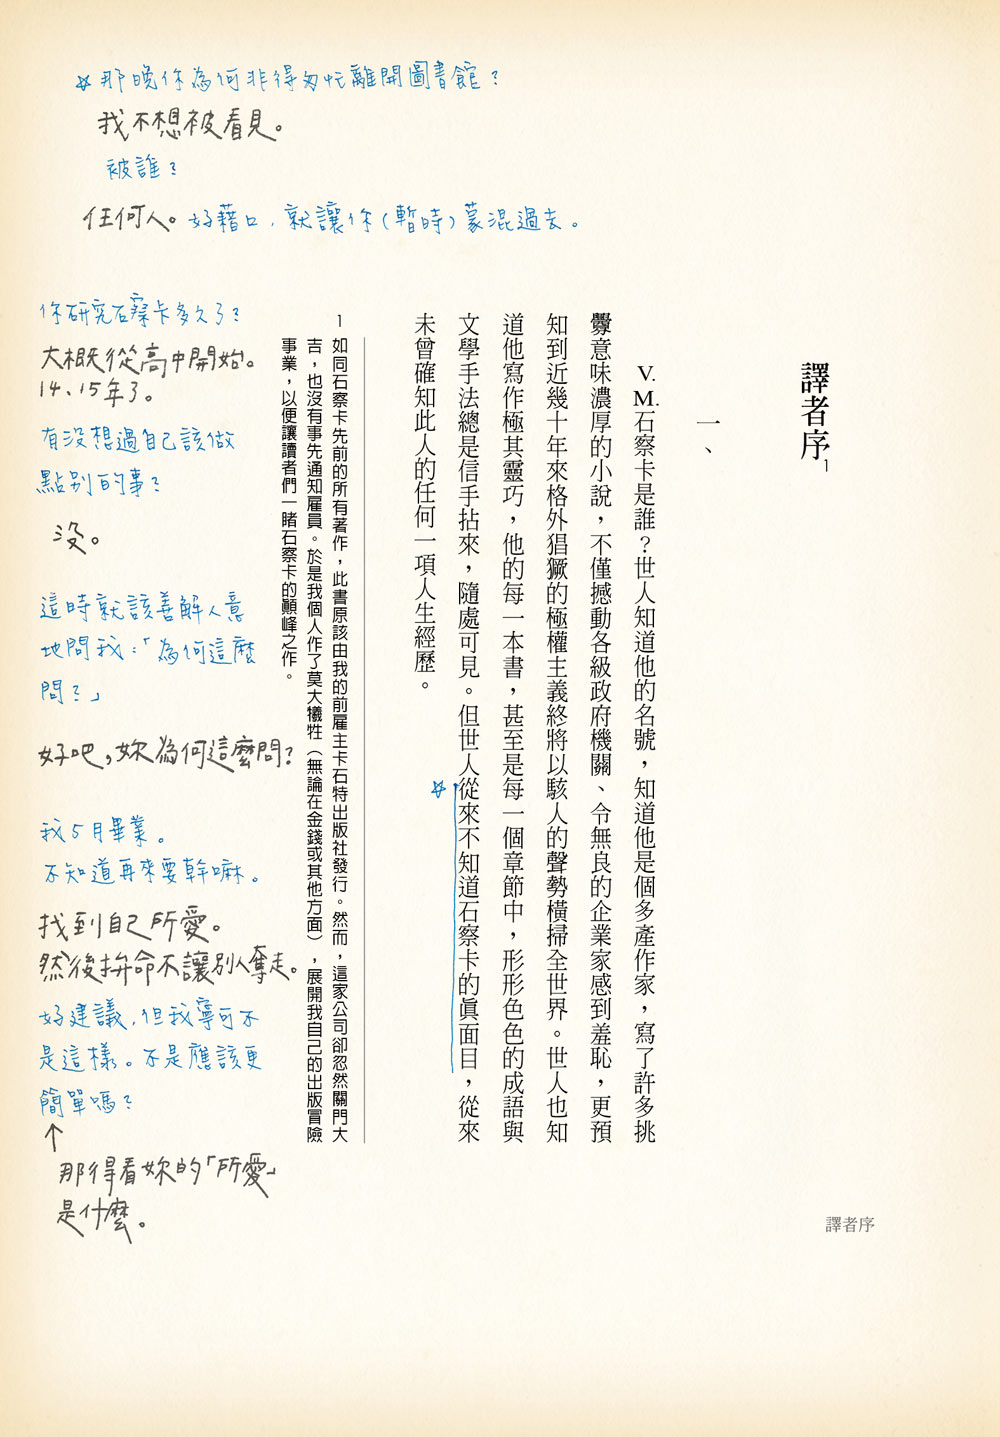 ☆那晚你為何非得匆忙離開圖書館？
我不想被看見。
被誰？
任何人。好藉口，就讓你（暫時）蒙混過去。
譯者序1
一、
V. M.石察卡是誰？世人知道他的名號，知道他是個多產作家，寫了許多挑
釁意味濃厚的小說，不僅撼動各級政府機關、令無良的企業家感到羞恥，更預
知到近幾十年來格外猖獗的極權主義終將以駭人的聲勢橫掃全世界。世人也知
道他寫作極其靈巧，他的每一本書，甚至是每一個章節中，形形色色的成語與
文學手法總是信手拈來，隨處可見。但世人從來不知道石察卡的真面目，從來
未曾確知此人的任何一項人生經歷。
☆
1 如同石察卡先前的所有著作，此書原該由我的前雇主卡石特出版社發行。然而，這家公司卻忽然關門大
吉，也沒有事先通知雇員。於是我個人作了莫大犧牲（無論在金錢或其他方面），展開我自己的出版冒險
事業，以便讓讀者們一睹石察卡的顛峰之作。
你研究石察卡多久了？
大概從高中開始。
14、15年了。
有沒想過自己該做
點別的事？
沒。
這時就該善解人意
地問我：「為何這麼
問？」
好吧，妳為何這麼問？
我5月畢業。
不知道再來要幹嘛。
找到自己所愛。
然後拚命不讓別人奪走。
好建議，但我寧可不
是這樣。不是應該更
簡單嗎？
↑
那得看妳的「所愛」
是什麼。
譯者序